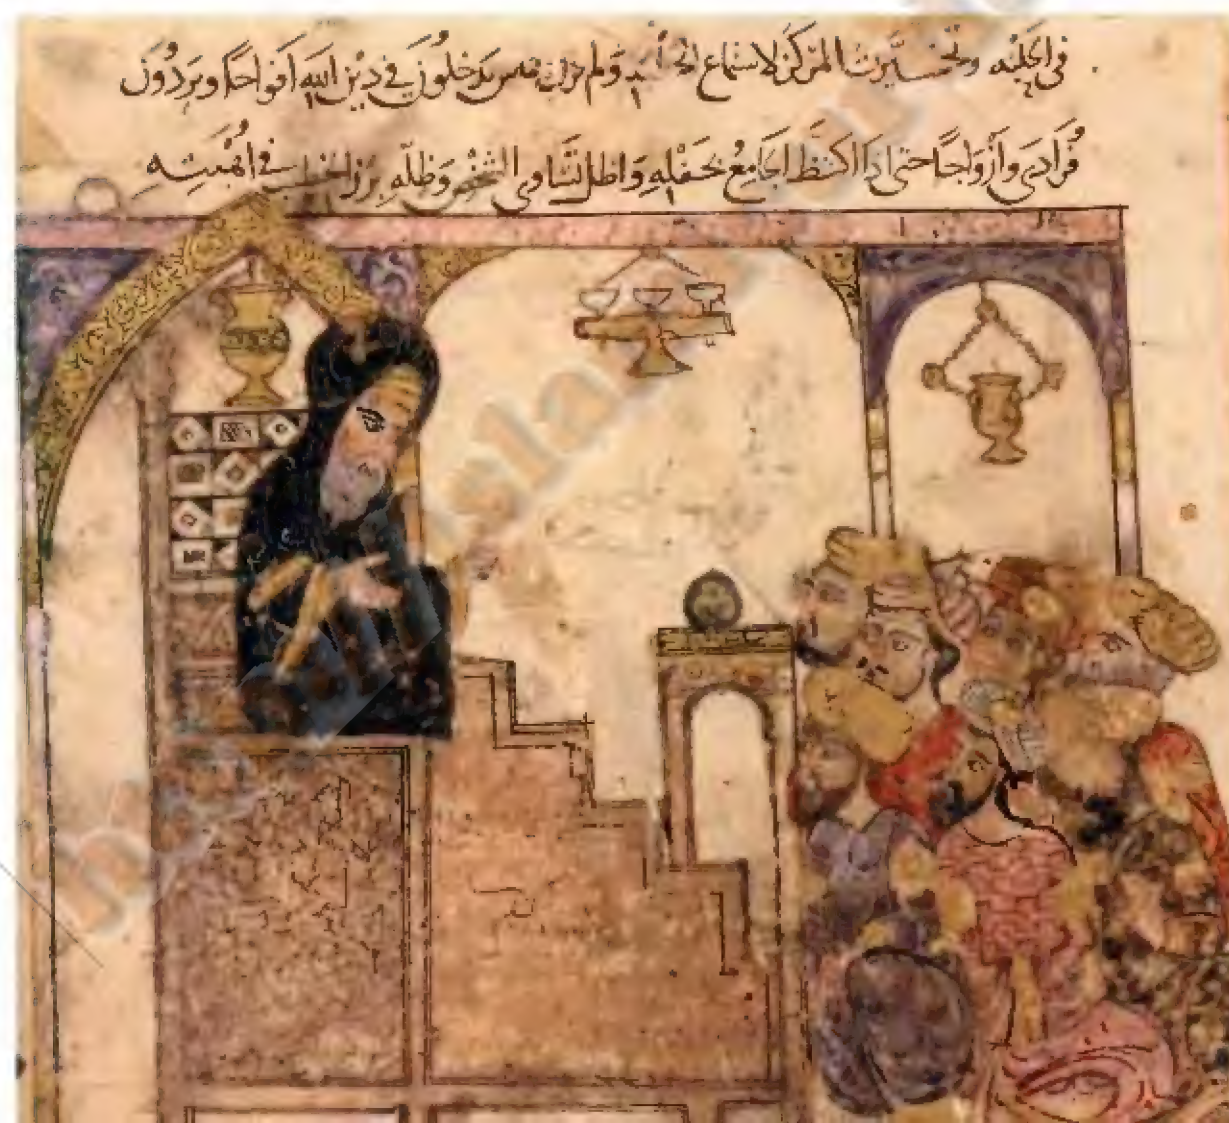 في الحلبة وتخيرت المركز لاستماع الخطبة ولم يزل الناس يدخلون في دين الله افواجا ويردون
فرادى وأزواجا حتى اذا اكتظ الجامع بحفله واظل تساوي الشخص وظله برز الخطيب في أهبته